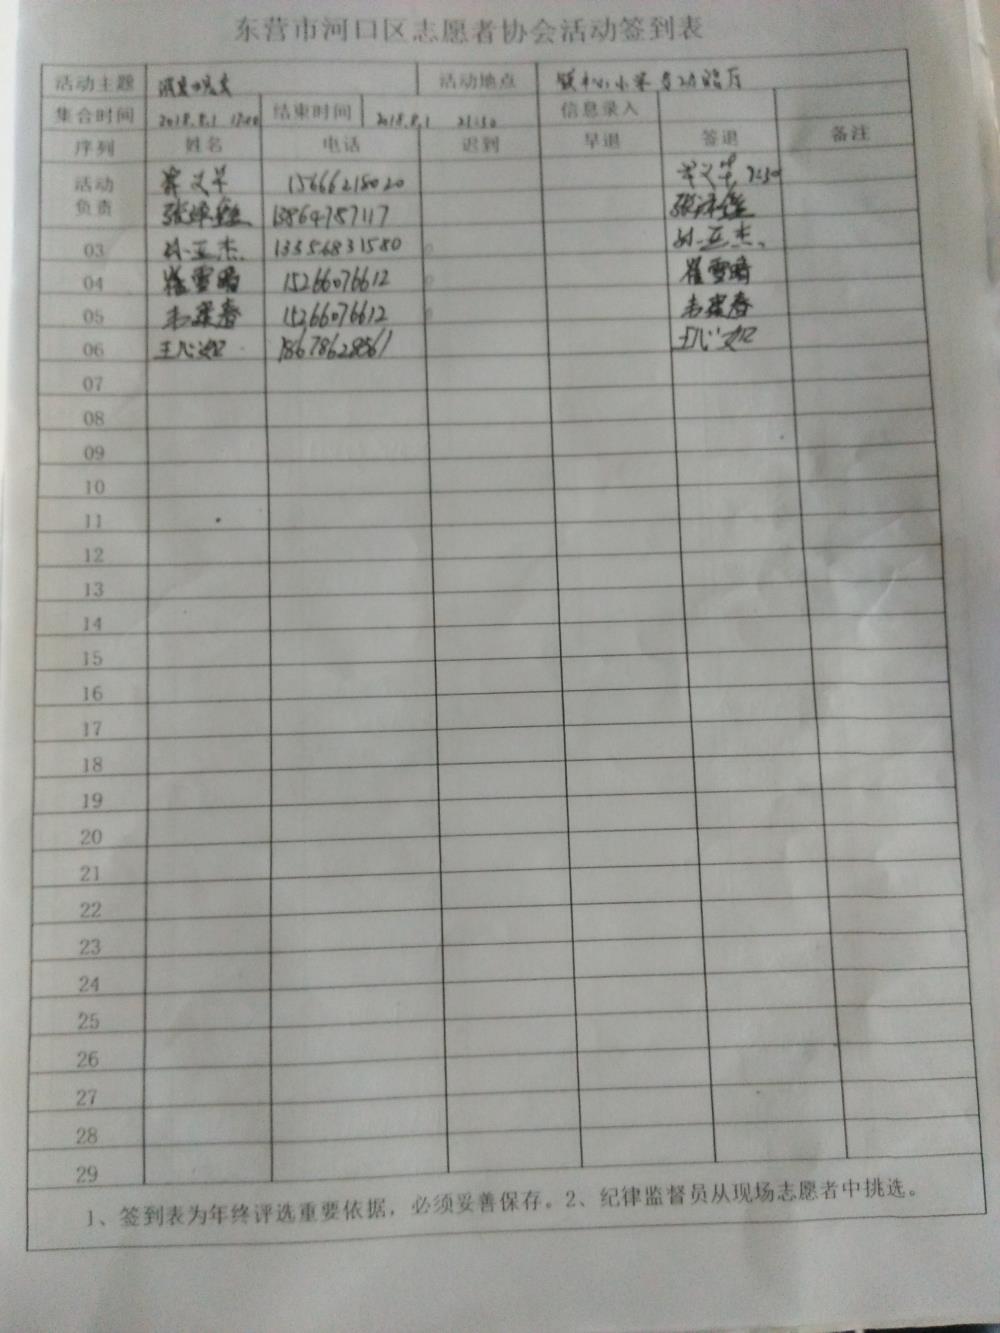 东营市河口区志愿者协会活动签到表
活动主题 活动地点
集合时间 2018.8.1 结束时间 2018.8.1 21:30 信息录入
序列 姓名 电话 迟到 早退 签退 备注
活动 15666215020
负责 13864787117
03 孙亚杰 13356831580 孙亚杰
04 崔雪晴 15266076612 崔雪晴
05 15266076612
06 王心如 18678628561 王心如
07
08
09
10
11
12
13
14
15
16
17
18
19
20
21
22
23
24
25
26
27
28
29
1、签到表为年终评选重要依据，必须妥善保存。2、纪律监督员从现场志愿者中挑选。